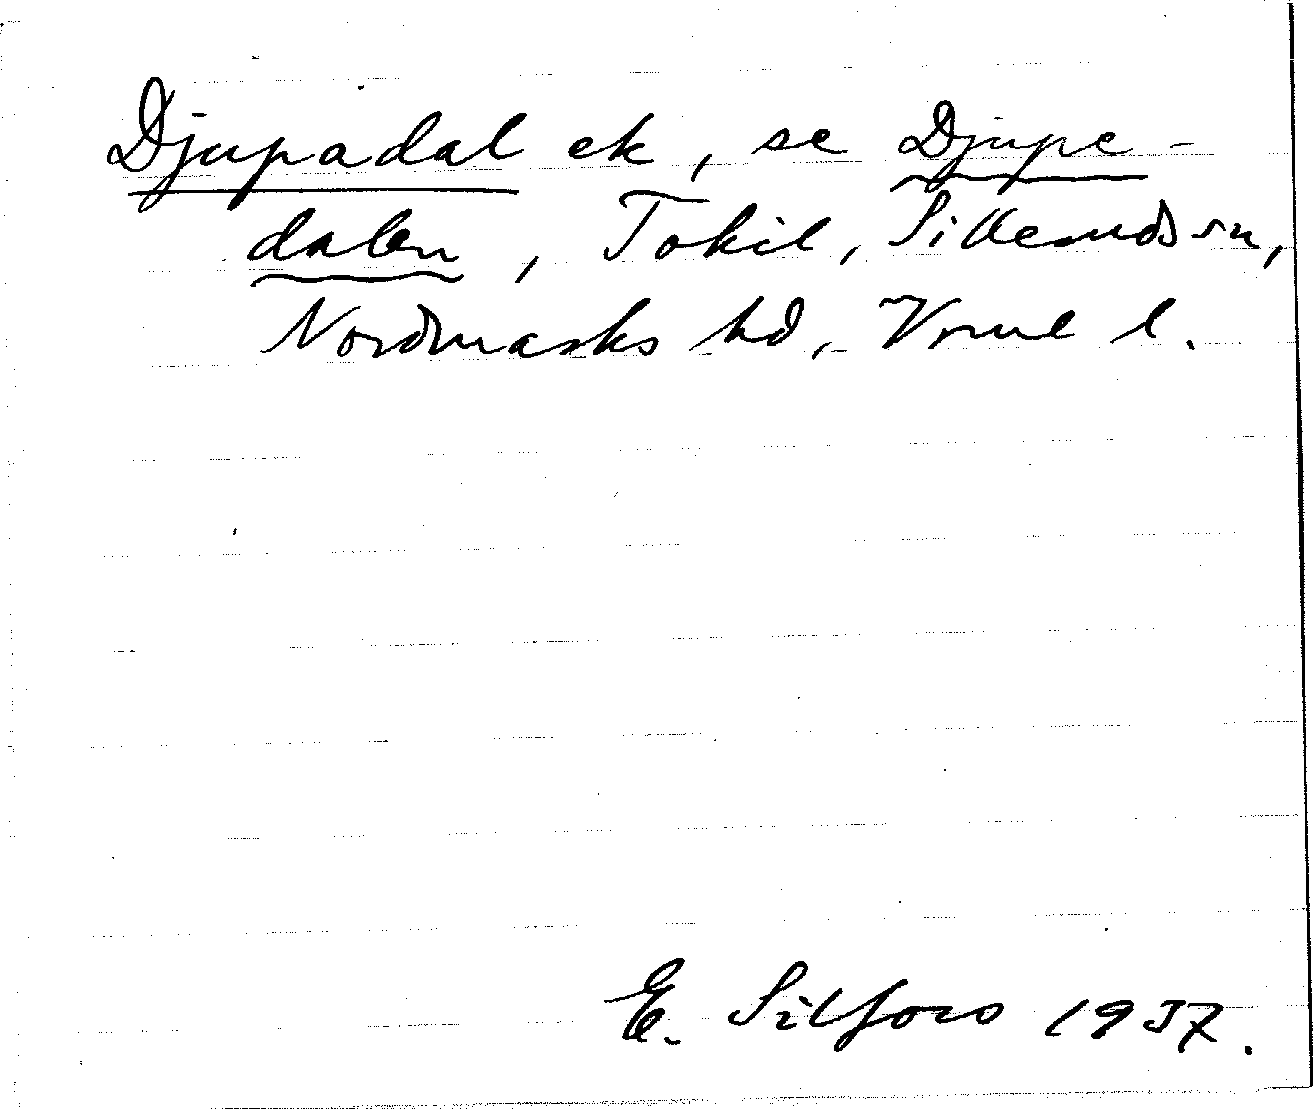 Djupadal ek, se Djupe-
dalen, Tokil, Silleruds sn,
Nordmarks hd, Vrml l.
E. Silfors 1937.